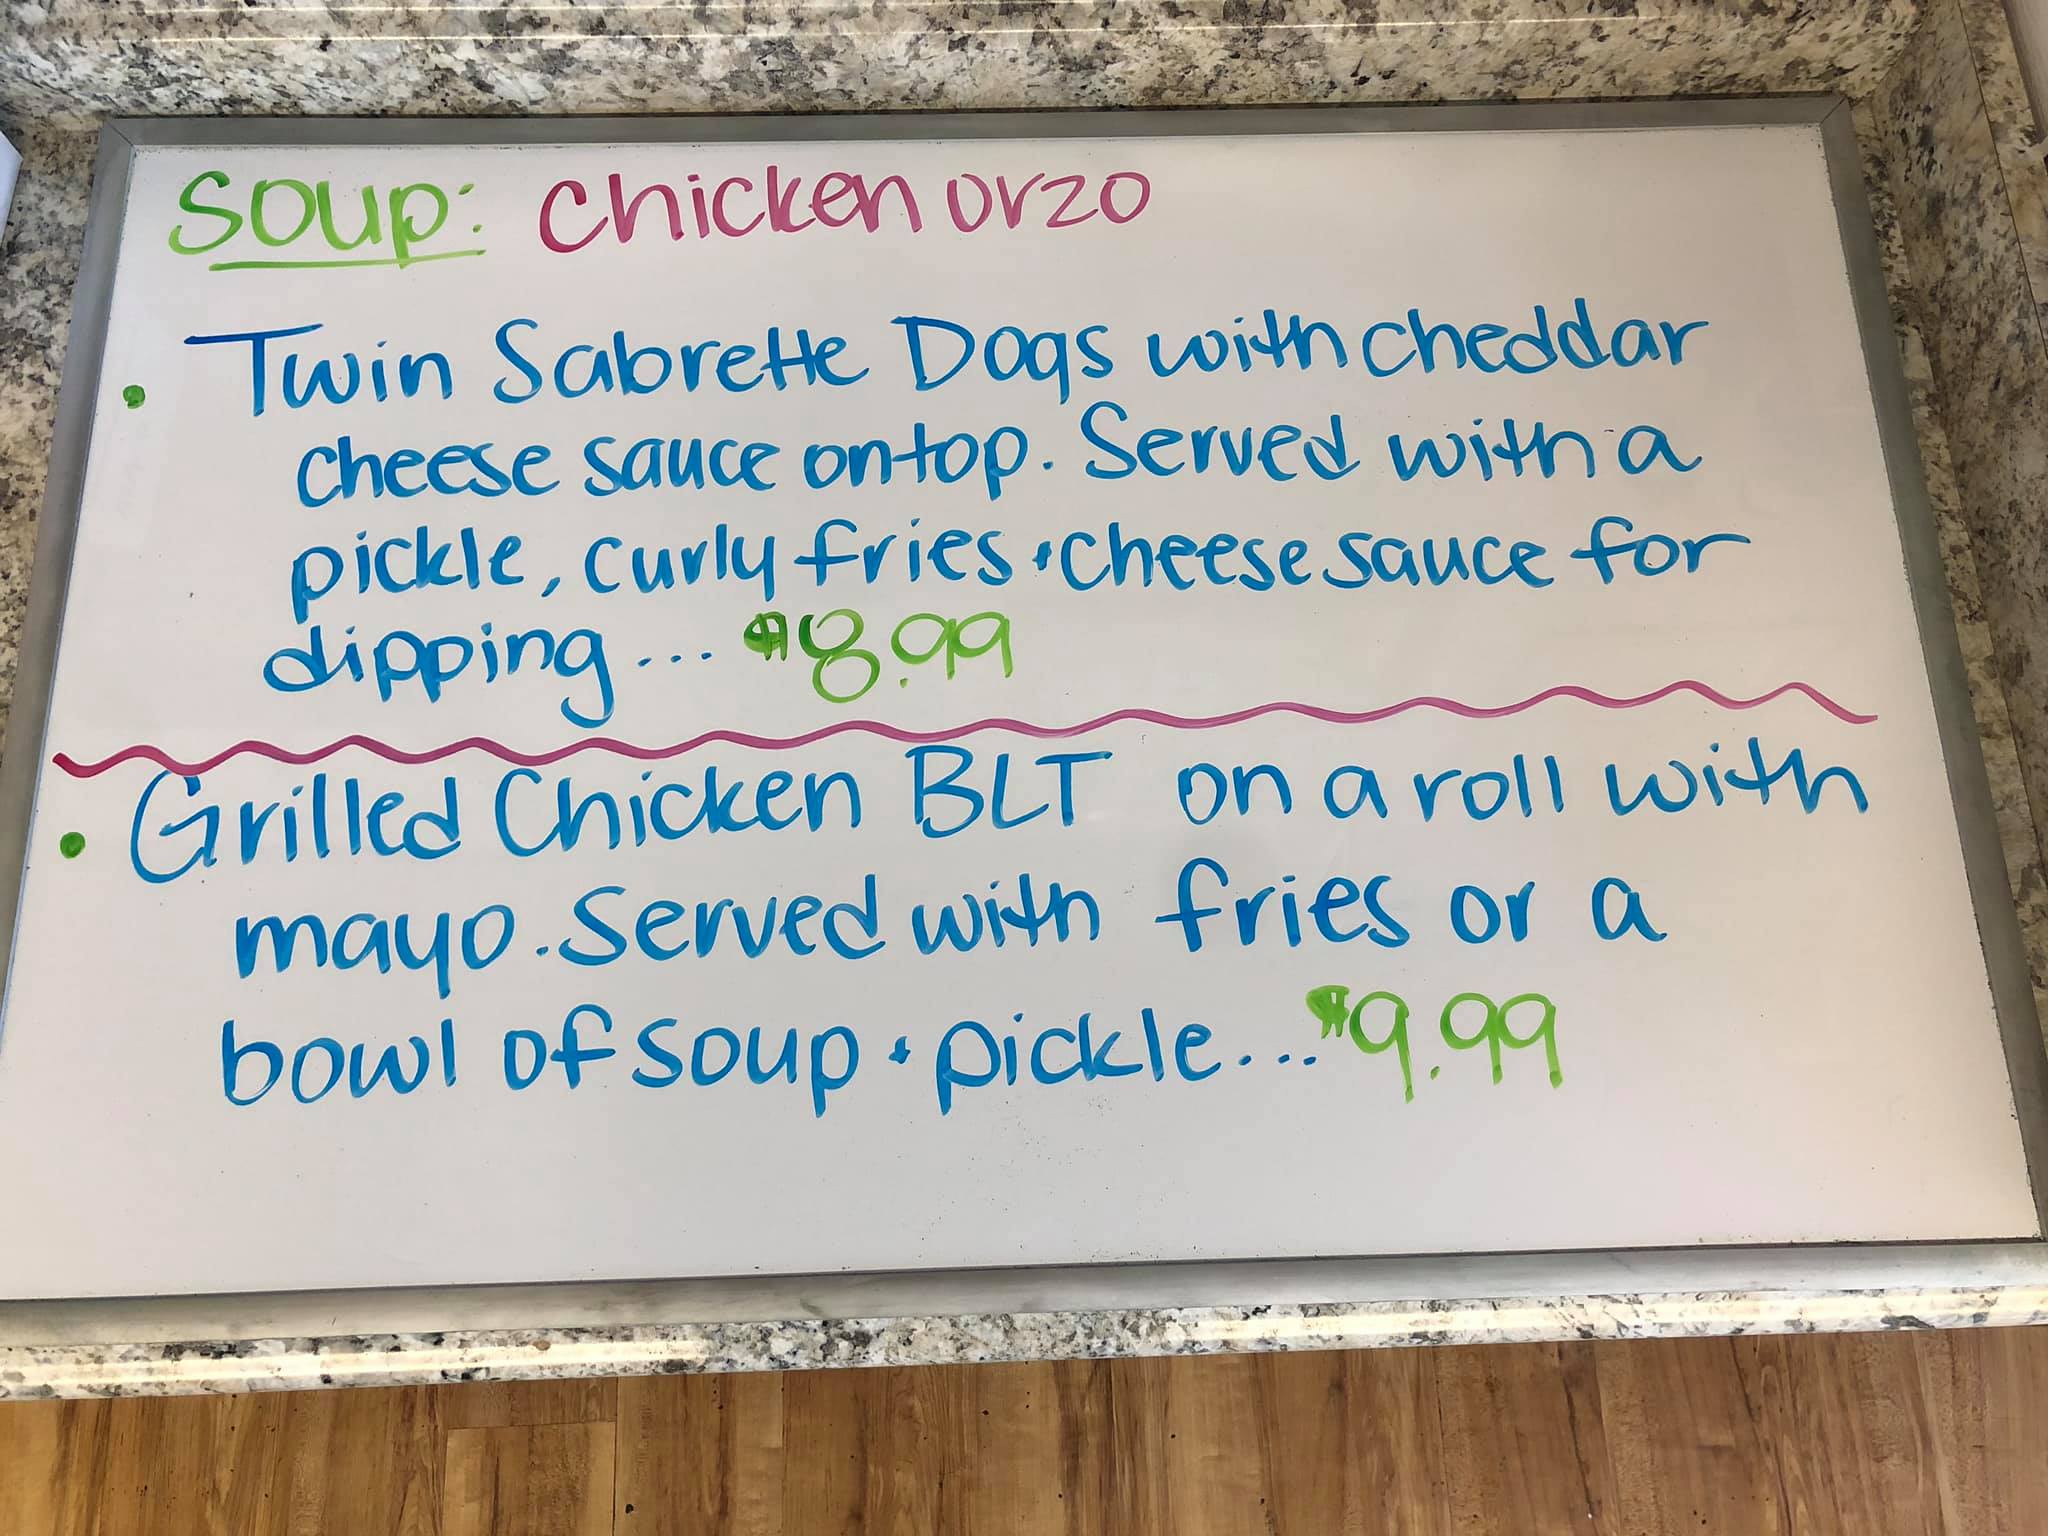 Soup: Chicken orzo
• Twin Sabrette Dogs with cheddar
cheese sauce on top. Served with a
pickle, curly fries + cheese sauce for
dipping... $8.99
• Grilled Chicken BLT on a roll with
mayo. Served with fries or a
bowl of soup + pickle... $9.99